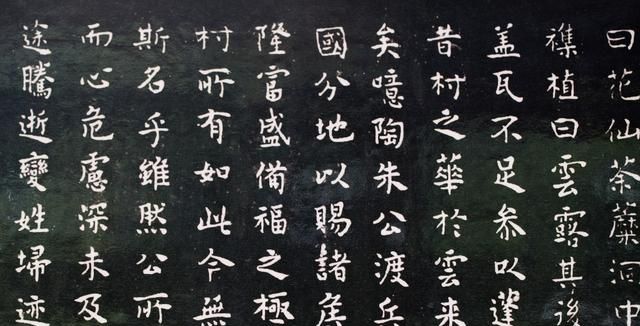 曰花仙荼蘼洞中
襍植曰雲露其後
盖瓦不足参以蓬
昔村之華於雲来
矣噫陶朱公渡兵
國分地以賜諸
隆富盛備福之極
村所有如此今無
斯名乎雖然公所
而心危慮深未及
途騰逝變姓埽迹